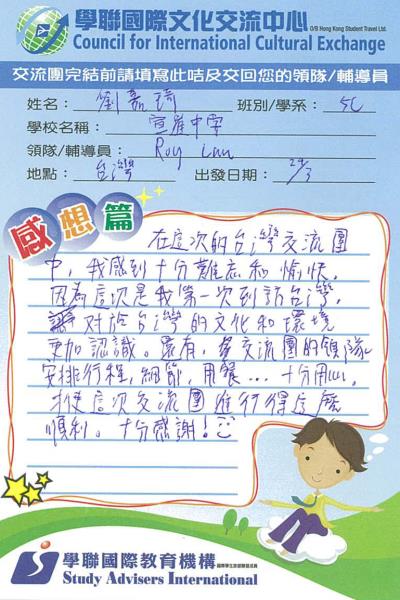 學聯國際文化交流中心
O/B Hong Kong Student Travel Ltd.
Council for International Cultural Exchange
交流團完結前請填寫此咭及交回您的領隊/輔導員
姓名： 劉嘉琦 班別/學系： 5C
學校名稱： 宣崔中學
領隊/輔導員： Roy Lau
地點： 台灣 出發日期： 29/3
感想篇
在這次的台灣交流團
中，我感到十分難忘和愉快。
因為這次是我第一次到訪台灣，
對於台灣的文化和環境
更加認識。還有，交流團的領隊
安排行程，細節，用餐… 十分用心。
才使這次交流團進行得這麼
順利。十分感謝！
學聯國際教育機構
Study Advisers International